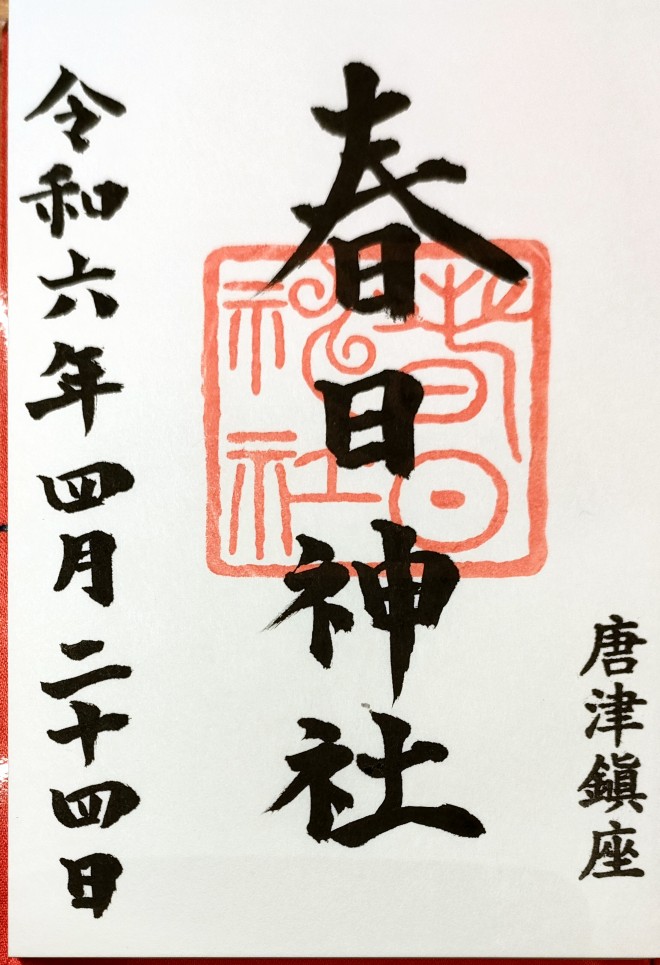 唐津鎮座
春日神社
春日神社
令和六年四月二十四日